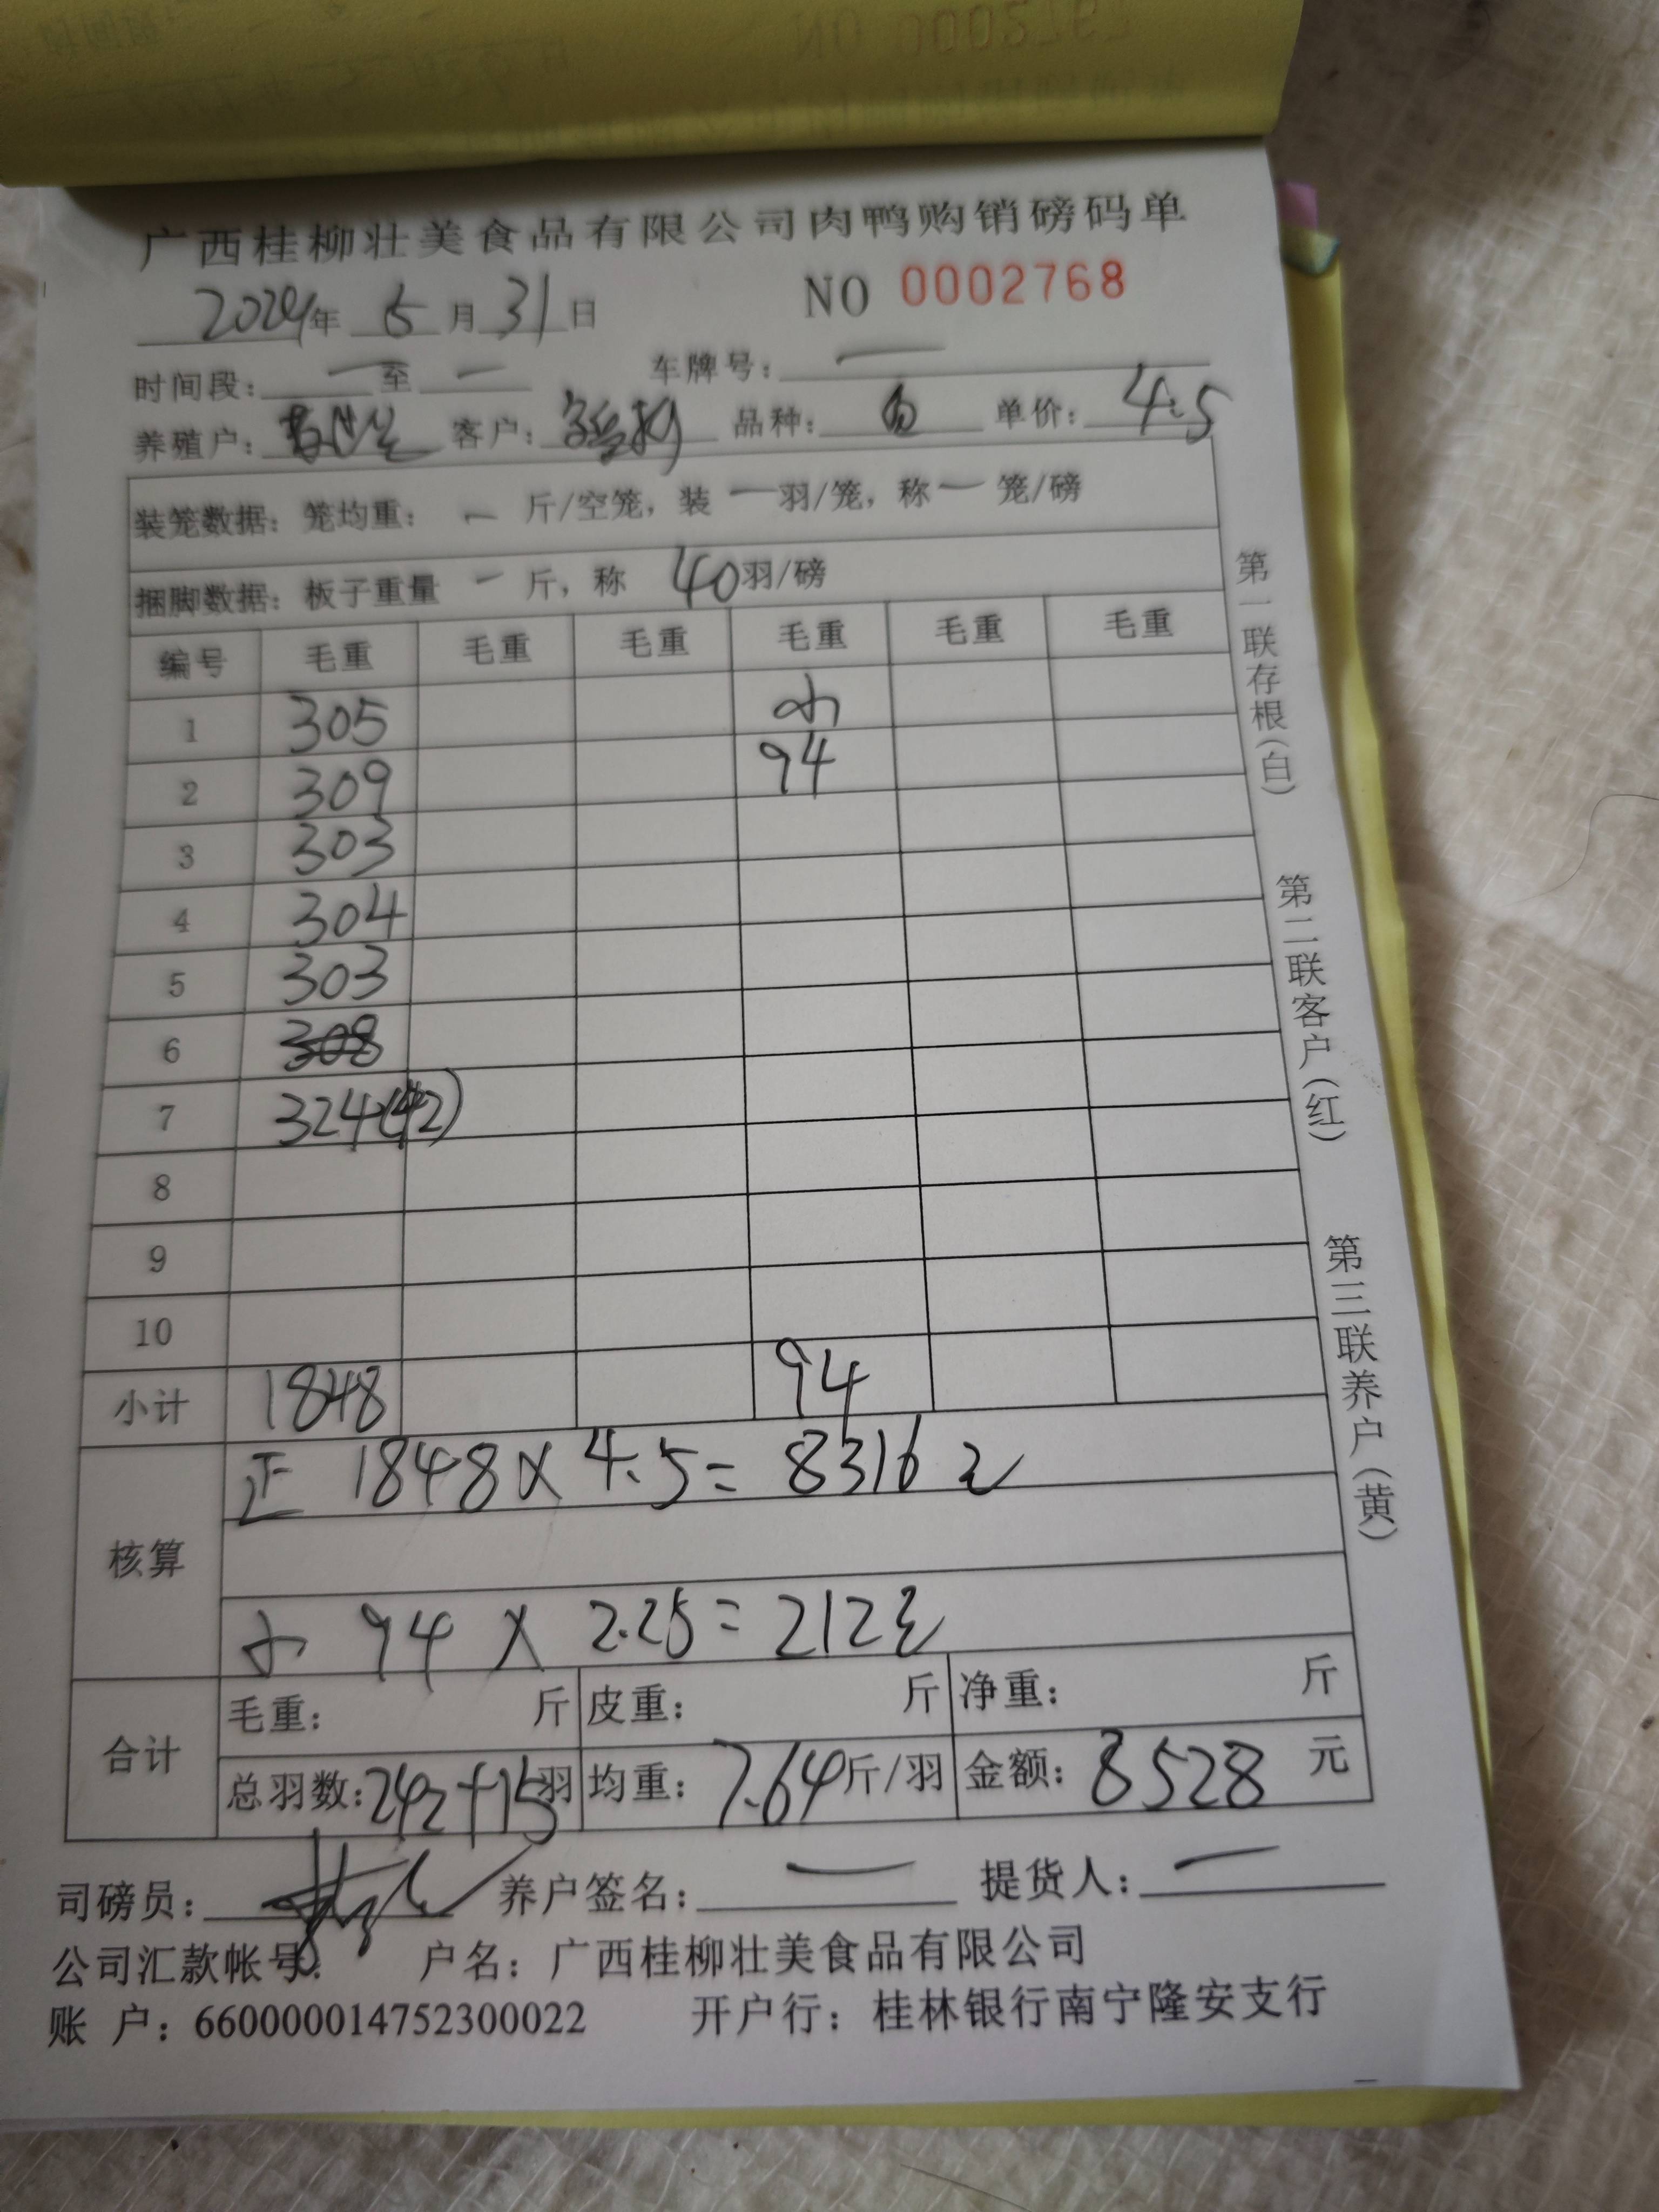 广西桂柳壮美食品有限公司肉鸭购销磅码单
2024年 5 月 31 日 NO 0002768
时间段： 一 至 一 车牌号： 一
养殖户： 客户： 品种： 单价： 4.5
装笼数据：笼均重： 一 斤/空笼，装 一 羽/笼，称 一 笼/磅
捆脚数据：板子重量 一 斤，称 40 羽/磅
编号 毛重 毛重 毛重 毛重 毛重 毛重
1 305 小
2 309 94
3 303
4 304
5 303
6 308
7 324(42)
8
9
10
小计 1848 94
核算
正 1848 X 4.5 = 8316元
小 94 X 2.25 = 212元
合计
毛重： 斤 皮重： 斤 净重： 斤
总羽数：242+15羽 均重：7.64斤/羽 金额：8528 元
司磅员： 养户签名： 一 提货人： 一
公司汇款帐号： 户名：广西桂柳壮美食品有限公司
账 户：660000014752300022 开户行：桂林银行南宁隆安支行
第一联存根(白)
第二联客户(红)
第三联养户(黄)